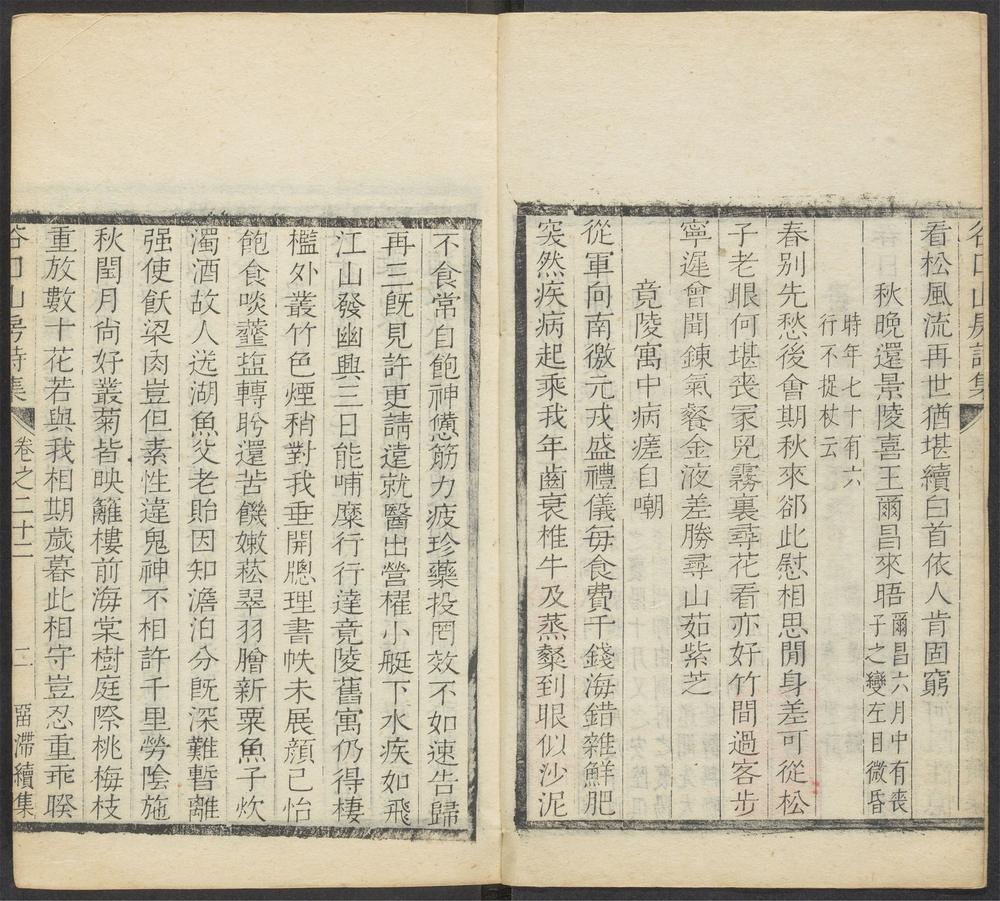 谷口山房詩集
看松風流再世猶堪續白首依人肯固窮
秋晚還景陵喜王爾昌來晤爾昌六月中有喪
子之變左目微昏
時年七十有六
行不捉杖云
春别先愁後會期秋來卻此慰相思閒身差可從松
子老眼何堪喪冡兒霧裏尋花看亦好竹間過客步
寧遲曾聞鍊氣餐金液差勝尋山茹紫芝
竟陵寓中病瘥自嘲
從軍向南徼元戎盛禮儀每食費千錢海錯雜鮮肥
突然疾病起乘我年齒衰椎牛及蒸粲到眼似沙泥
不食常自飽神憊筋力疲珍藥投罔效不如速告歸
再三旣見許更請遠就醫出營櫂小艇下水疾如飛
江山發幽興三日能哺糜行行達竟陵舊寓仍得棲
檻外叢竹色煙稍對我垂開牕理書帙未展顔已怡
飽食啖虀盐轉盻還苦饑嫩菘翠羽膾新粟魚子炊
濁酒故人送湖魚父老貽因知澹泊分旣深難暫離
强使飫梁肉豈但素性違鬼神不相許千里勞陰施
秋閏月尙好叢菊皆映籬樓前海棠樹庭際桃梅枝
重放數十花若與我相期歲暮此相守豈忍重乖暌
谷口山房詩集
卷之二十二
二
畱滯續集